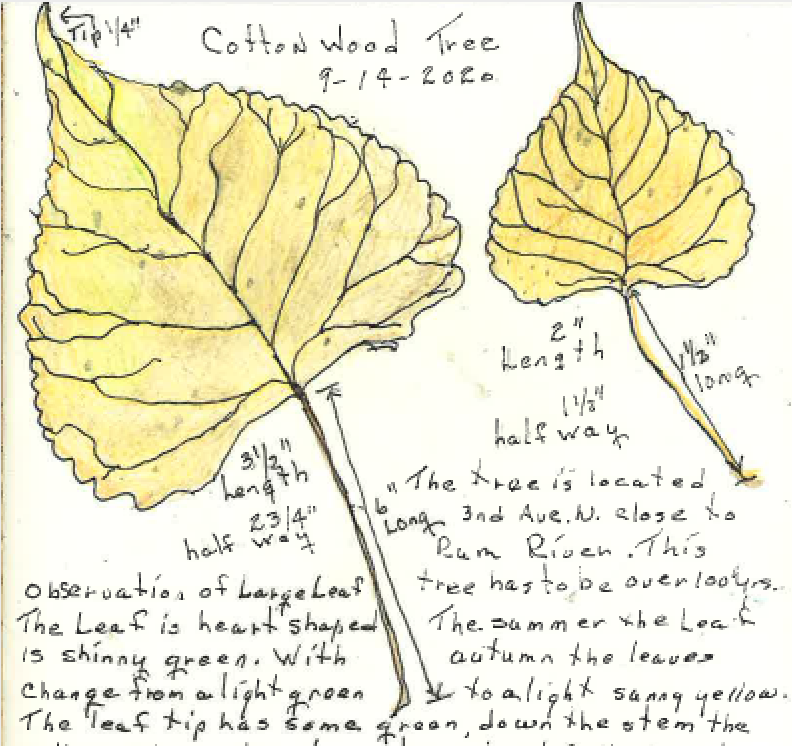 Tip 1/4"
Cotton Wood Tree
9-14-2020
2"
Length
1 1/2"
long
half way
3 1/2"
Length
2 3/4"
half way
6"
Long
The tree is located
3nd Ave. N. close to
Rum River. This
tree has to be over 100 yrs.
Observation of Large Leaf
The Leaf is heart shaped The summer the Leaf
is shinny green. With autumn the leaves
Change from a light green to a light sunny yellow.
The leaf tip has some green, down the stem the